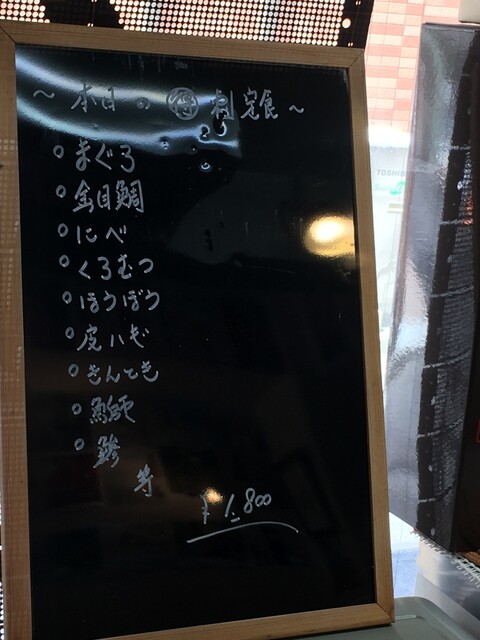 ~ 本日の 特 刺定食 ~
○ まぐろ
○ 金目鯛
○ にべ
○ くろむつ
○ ほうぼう
○ 皮ハギ
○ きんとき
○
○ 鯵
等
¥1.800